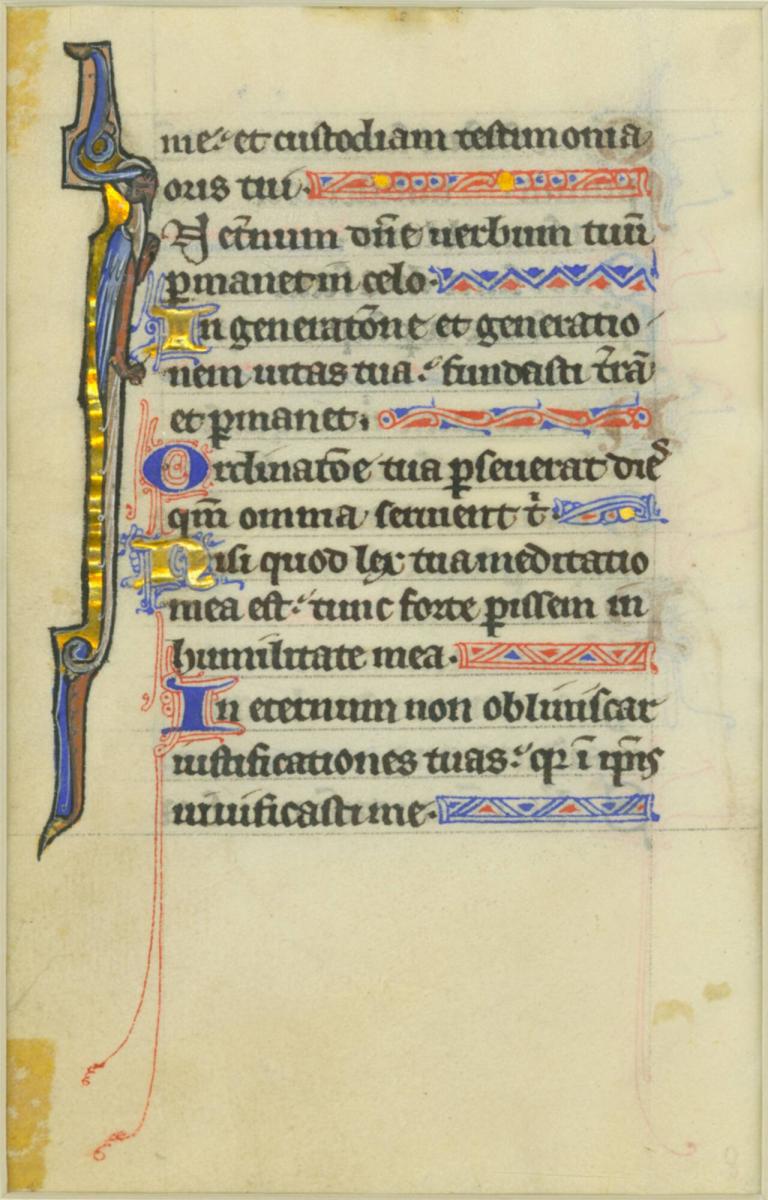 me: et custodiam testimonia
oris tui.
In et̄num dn̄e uerbum tuū
ꝑmanet in celo.
In generatōne et generatio
nem uitas tua: fundasti t̄rā
et ꝑmanet.
Ordinatōe tua ꝑseuerat dies
qm̄ omnia seruient t̄
Nisi quod lex tua meditatio
mea est: tunc forte ꝑissem in
humilitate mea.
In eternum non obliuiscar
iustificationes tuas: qr ī ip̄is
uiuificasti me.